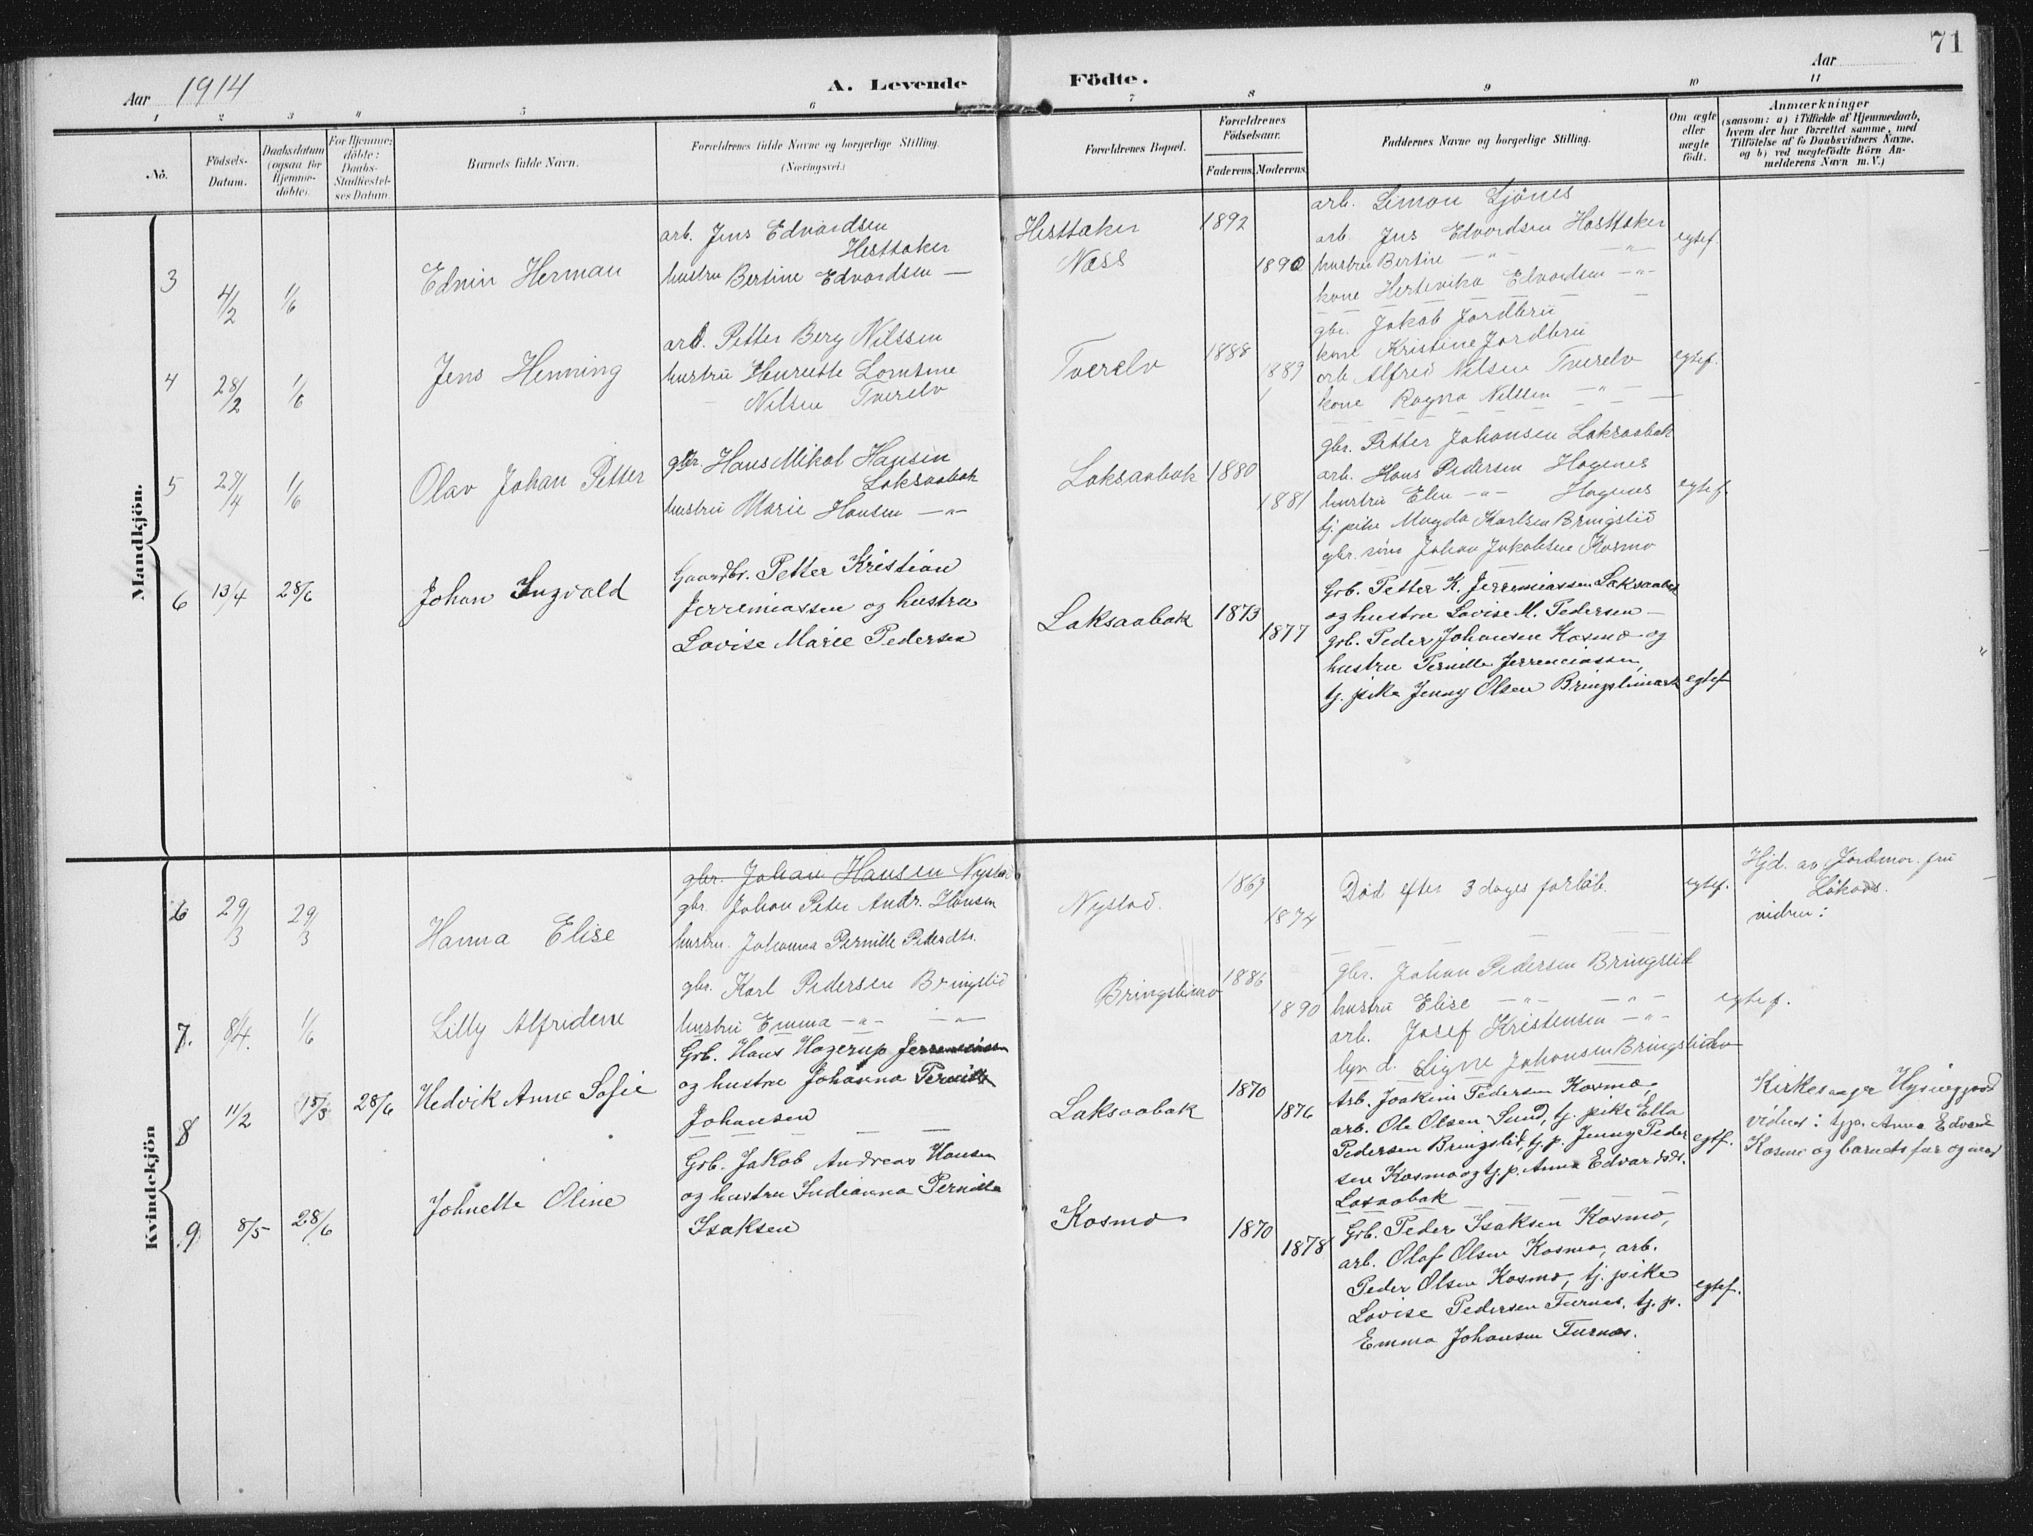 71
Aar 1914
A. Levende Födte.
Aar
1 2 3 4 5 6 7 8 9 10 11
No.
Födsels-Datum.
Daabsdatum (ogsaa for Hjemmedöbte).
For Hjemmedöbte: Daabs-Stadfæstelses Datum.
Barnets fulde Navn.
Forældrenes fulde Navne og borgerlige Stilling. (Næringsvei.)
Forældrenes Bopæl.
Forældrenes Födselsaar.
Faderens. Moderens.
Faddernes Navne og borgerlige Stilling.
Om ægte eller uægte födt.
Anmærkninger
(saasom: a) i Tilfælde af Hjemmedaab,
hvem der har forrettet samme, med
Tilföielse af to Daabsvidners Navne,
og b) ved uægtefödte Börn Anmelderens Navn m. V.)
Mandkjön.
3 4/2 1/6 Edvin Herman
arb. Jens Edvardsen
Hesttaker
hustru Bertine Edvardsen —
Hesttaker
Næss
1892
1890
arb. Simon Sjönes
arb. Jens Edvardsen Hesttaker
hustru Bertine — " — — " —
kone Hertevika Edvardsen — " —
egtef
4 28/2 1/6 Jens Henning
arb. Petter Berg Nilssen
hustru Henrette Lomsine
Nilsen Tverelv
Tverelv
1888
1889
gbr. Jakob Jordbru
kone Kristine Jordbru
arb Alfred Nilsen Tverelv
kone Ragna Nilssen — " —
egtef.
5 29/4 1/6 Olav Johan Petter
gbr. Hans Mikal Hansen
Laksaabak
hustru Marie Hansen — " —
Laksaabak
1880
1881
gbr. Petter Johansen Laksaabak
arb. Hans Pedersen Hagenes
hustru Elen — " — Hagenes
tj. pike Magda Karlsen Bringslid
gbr. sön Johan Jakobsen Kosmo
egtef.
6 13/4 28/6 Johan Ingvald
Gaardbr. Petter Kristian
Jerremiassen og hustru
Lovise Marie Pedersen
Laksaabak
1873
1877
Grb. Petter K. Jerremiassen Laksaabak
og hustru Lovise M. Pedersen —
grb. Peder Johansen Kosmo og
hustru Pernille Jerremiassen,
tj. pike Jenny Olsen Bringslimark
egtef
Kvindekjön
6 29/3 29/3 Hanna Elise
gbr. Johan Hansen Nystad
gbr. Johan Peter Andr. Hansen
hustru. Johanna Pernille Pedersdtr.
Nystad.
1869
1874
Död efter 3 dages forlöb.
egtef.
Hjd. av Jordmor. fru
vidner:
7. 8/4. 1/6 Lilly Alfridene
gbr. Karl Pedersen Bringslid
hustru Emma — " — — " —
Bringslimo
1886
1890
gbr. Johan Pedersen Bringslid
hustru Elise — " — — " —
arb. Josef Kristensen — " —
d. Signe Johansen Bringslid
egtef.
8 11/2 15/3 28/6 Hedvik Anne Sofie
Grb. Hans Hagerup Jerremiassen
og hustru Johanna Pernille
Johansen
Laksaabak
1870
1876
Arb. Joakim Pedersen Kosmo,
arb. Ole Olsen Sund, tj. pike Ella
Pedersen Bringslid, tj. p. Jenny Peder
sen Kosmo og tj. p. Anna Edvardsdr.
Laksaabak
egtf.
Kirkesanger
vidner: tjp. Anna Edvard
Kosmo og barnets far og mor
9 8/5 28/6 Johnette Oline
Grb. Jakob Andreas Hansen
og hustru Indianna Pernille
Isaksen
Kosmo
1870
1878
Grb. Peder Isaksen Kosmo,
arb. Olaf Olsen Kosmo, arb.
Peder Olsen Kosmo, tj. pike
Lovise Pedersen Furnes, tj. p.
Emma Johansen Furnæs.
egtef.